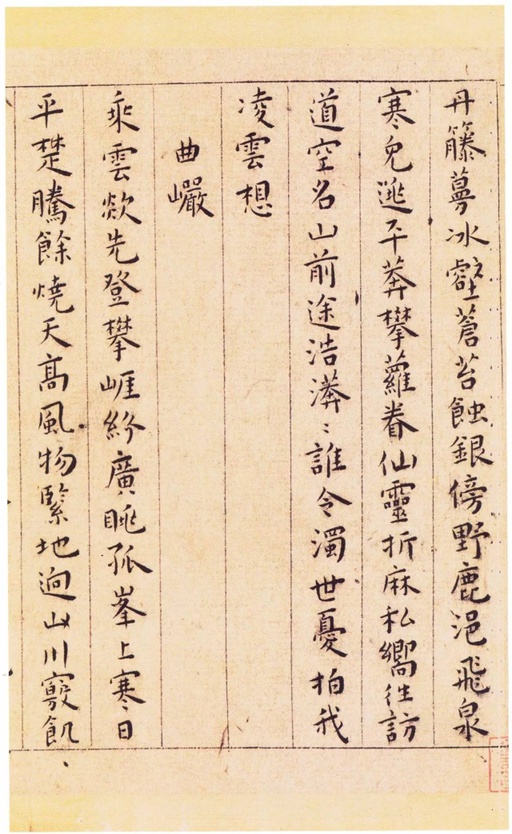 丹籐冰壑蒼苔蝕銀傍野鹿浥飛泉
寒兔逃平莽攀蘿眷仙靈折麻私嚮往訪
道空名山前途浩漭〻誰令濁世憂拍我
凌雲想
曲巗
乘雲欻先登攀崕紛廣眺孤峯上寒日
平楚騰餘燒天高風物緊地迥山川竅飢